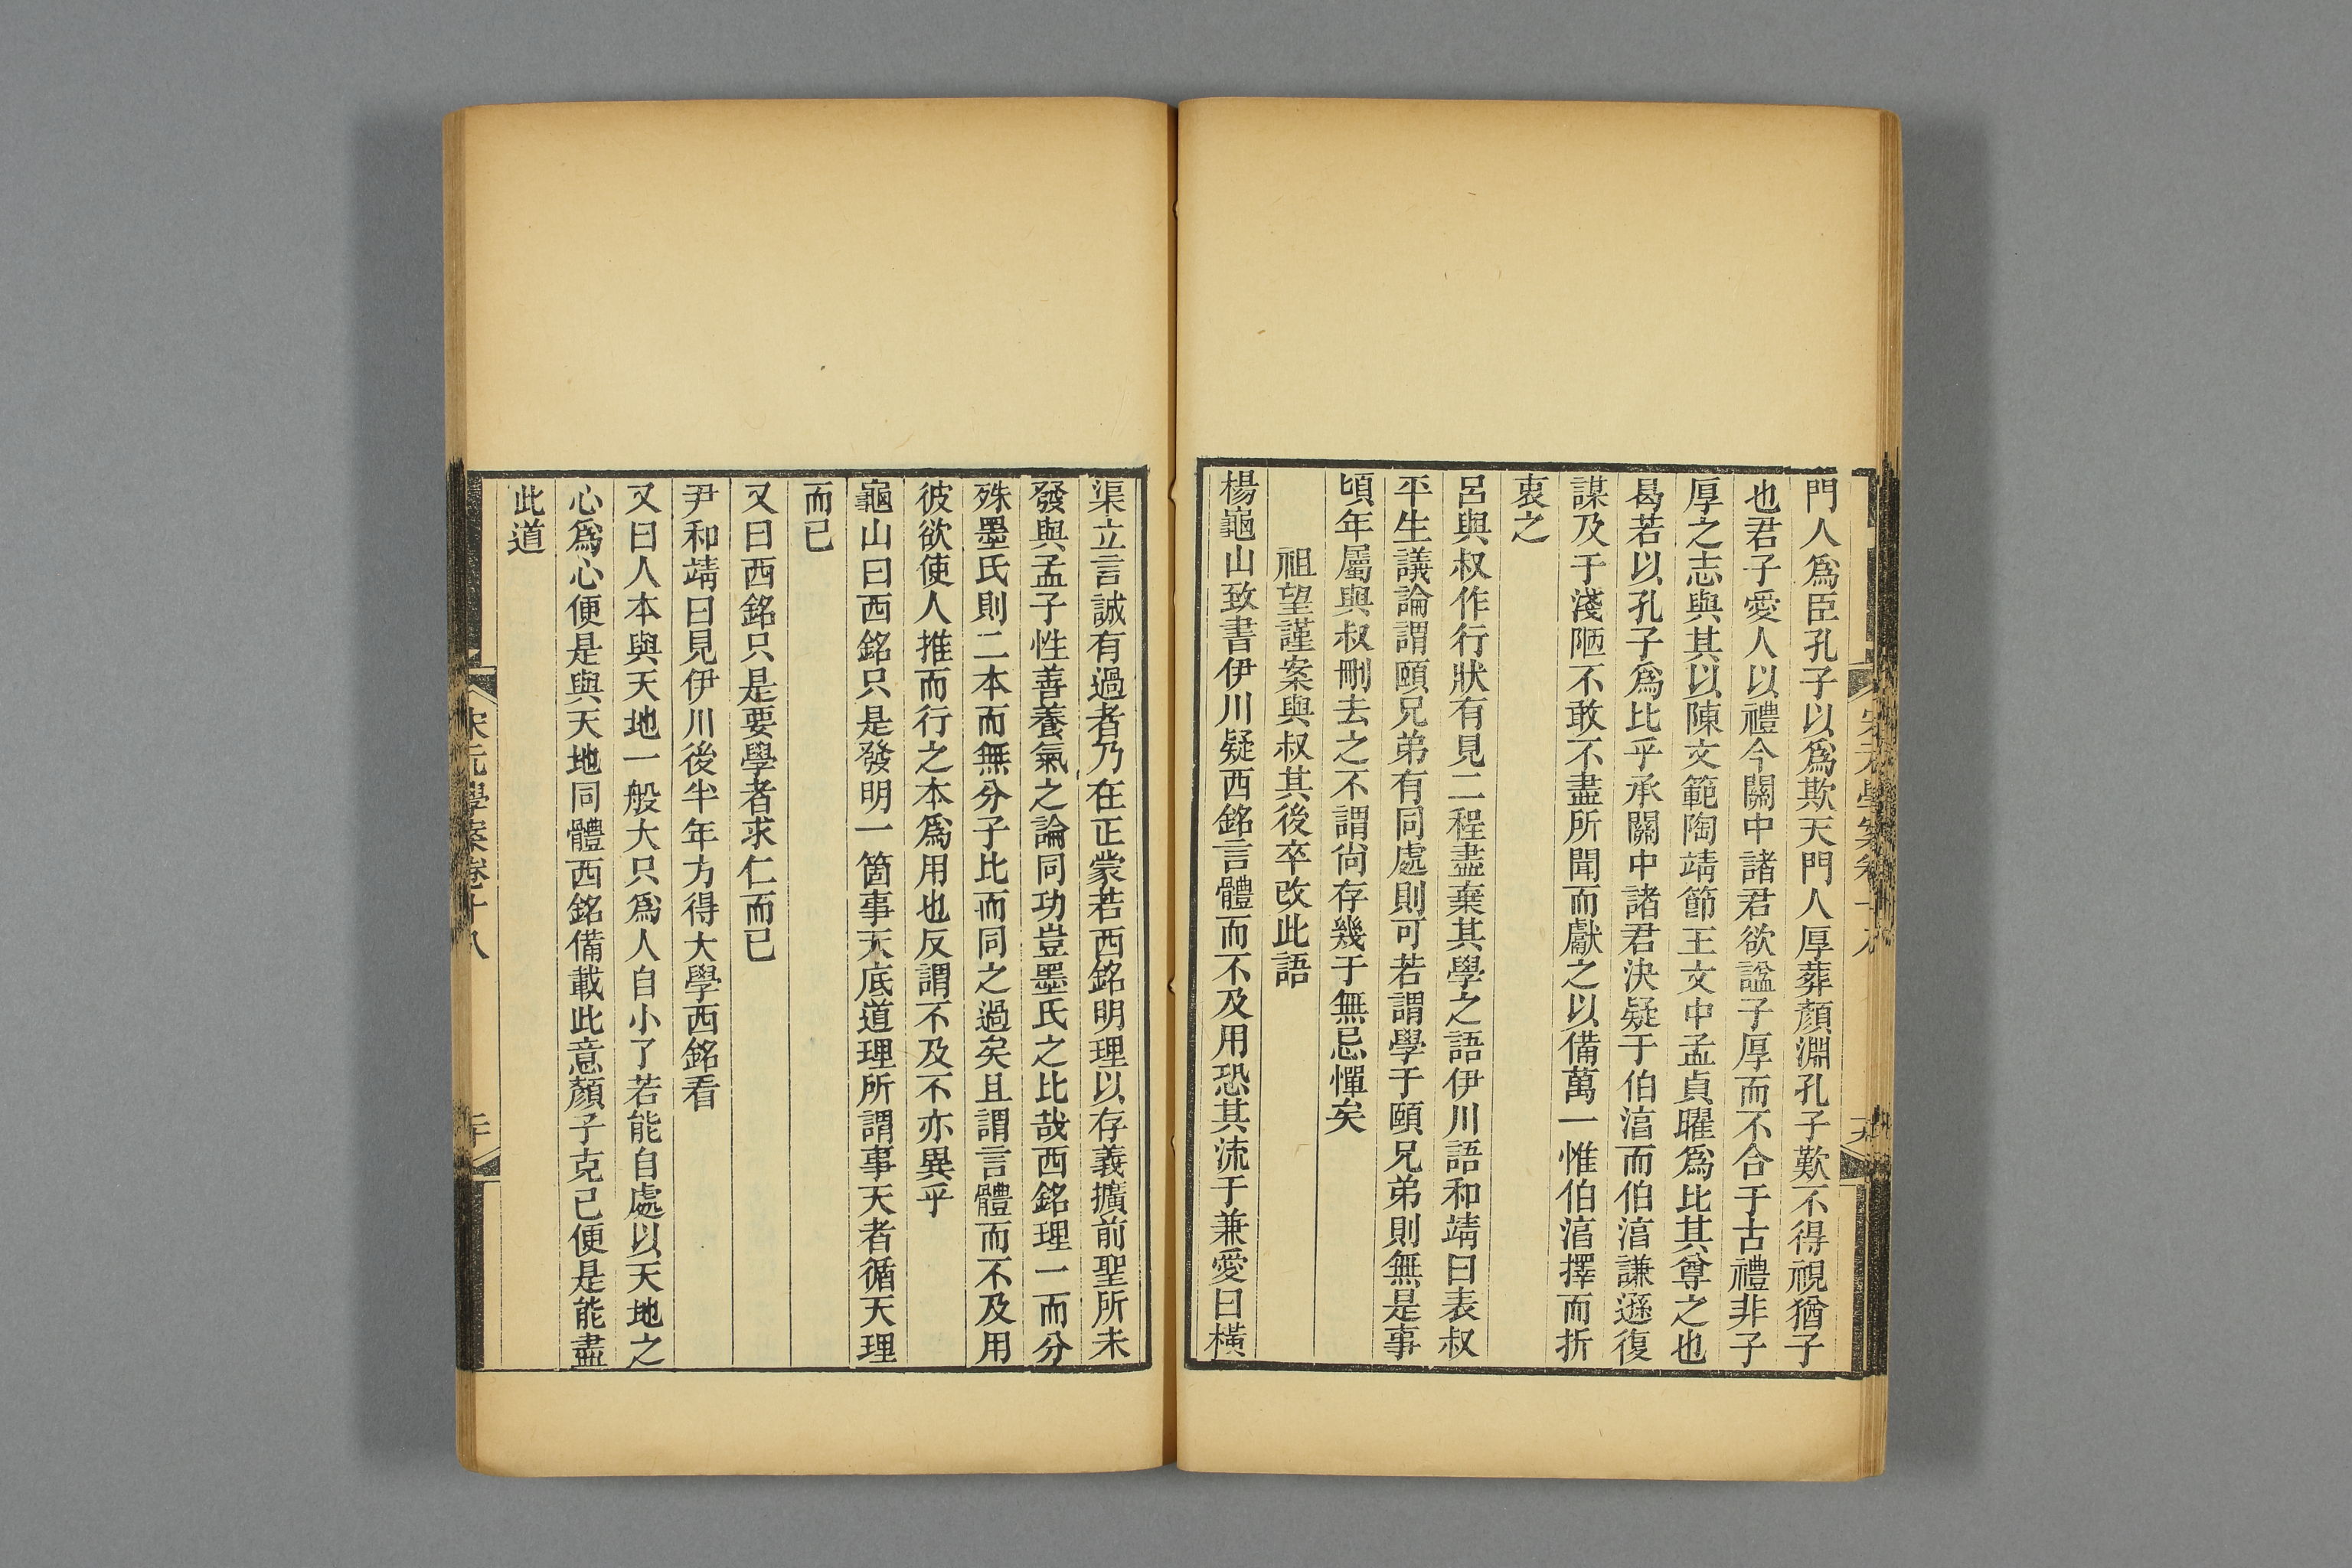 門人爲臣孔子以爲欺天門人厚葬顏淵孔子歎不得視猶子
也君子愛人以禮今關中諸君欲諡子厚而不合于古禮非子
厚之志與其以陳文範陶靖節王文中孟貞曜爲比其尊之也
曷若以孔子爲比乎承關中諸君決疑于伯淯而伯淯謙遜復
謀及于淺陋不敢不盡所聞而獻之以備萬一惟伯淯擇而折
衷之
呂與叔作行狀有見二程盡棄其學之語伊川語和靖曰表叔
平生議論謂頤兄弟有同處則可若謂學于頤兄弟則無是事
頃年屬與叔刪去之不謂尙存幾于無忌憚矣
祖望謹案與叔其後卒改此語
楊龜山致書伊川疑西銘言體而不及用恐其流于兼愛曰橫
渠立言誠有過者乃在正蒙若西銘明理以存義擴前聖所未
發與孟子性善養氣之論同功豈墨氏之比哉西銘理一而分
殊墨氏則二本而無分子比而同之過矣且謂言體而不及用
彼欲使人推而行之本爲用也反謂不及不亦異乎
龜山曰西銘只是發明一箇事天底道理所謂事天者循天理
而已
又曰西銘只是要學者求仁而已
尹和靖曰見伊川後半年方得大學西銘看
又曰人本與天地一般大只爲人自小了若能自處以天地之
心爲心便是與天地同體西銘備載此意顏子克己便是能盡
此道
宋元學案卷十八